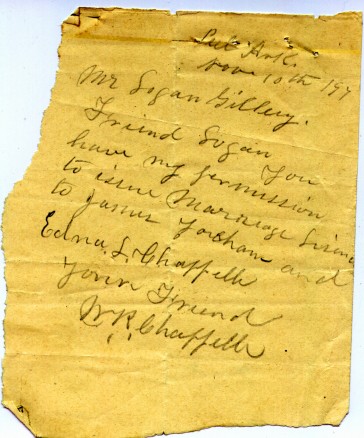 Ark.
Nov 10th 197
Mr Logan Gilley.
Friend Logan You
have my permission
to issue Marreage Lisence
to James Forcham and
Edna. L. Chappelle
Your Friend
W.R. Chappelle